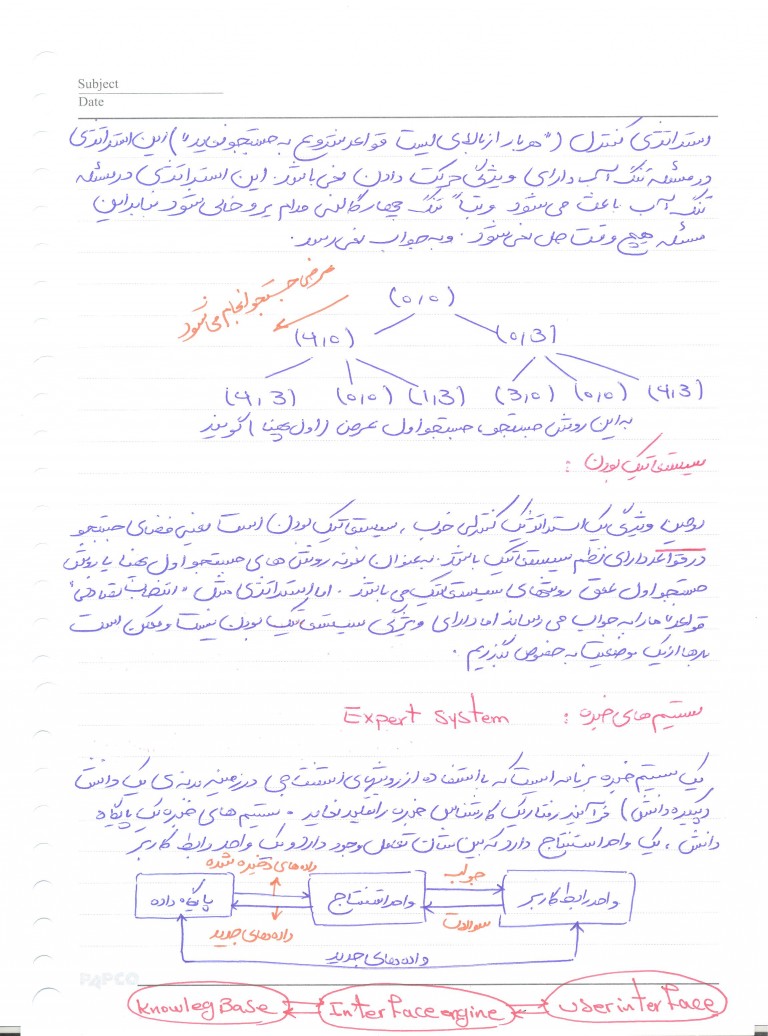 Subject
Date
استراتژی کنترل ("هر بار از بالای لیست قواعد شروع به جستجو کنید") این استراتژی
در مسئله تنگ آب دارای ویژگی حرکت دادن نمی باشد. این استراتژی در مسئله
تنگ آب باعث می شود مرتباً تنگ چهار گالنی مدام پر و خالی شود بنابراین
مسئله هیچ وقت حل نمی شود. و به جواب نمی رسد.
عرضی جستجو انجام می شود
(0,0)
(4,0) (0,3)
(4,3) (0,0) (1,3) (3,0) (0,0) (4,3)
به این روش جستجو، جستجو اول عرض (اول پهنا) گویند
سیستماتیک بودن :
دومین ویژگی یک استراتژی کنترلی خوب، سیستماتیک بودن است یعنی فضای جستجو
در قواعد دارای نظم سیستماتیک باشد. به عنوان نمونه روش های جستجو اول پهنا یا روش
جستجو اول عمق روشهای سیستماتیک می باشند. اما استراتژی مثل "انتخاب تصادفی
قواعد" ما را به جواب می رساند اما دارای ویژگی سیستماتیک بودن نیست و ممکن است
بارها از یک وضعیت به خصوص بگذریم.
سیستم های خبره : Expert System
یک سیستم خبره برنامه است که با استفاده از روشهای استنتاجی در زمینه بدنه ی یک دانش
(پیکره دانش) فرآیند رفتار یک کارشناس خبره را تقلید نماید. سیستم های خبره یک پایگاه
دانش، یک واحد استنتاج دارد که بین شان تعامل وجود دارد و یک واحد رابط کاربر
داده های ذخیره شده جواب
پایگاه داده واحد استنتاج واحد رابط کاربر
داده های جدید سوالات
داده های جدید
PAPCO
Knowleg Base Interface engine user interface